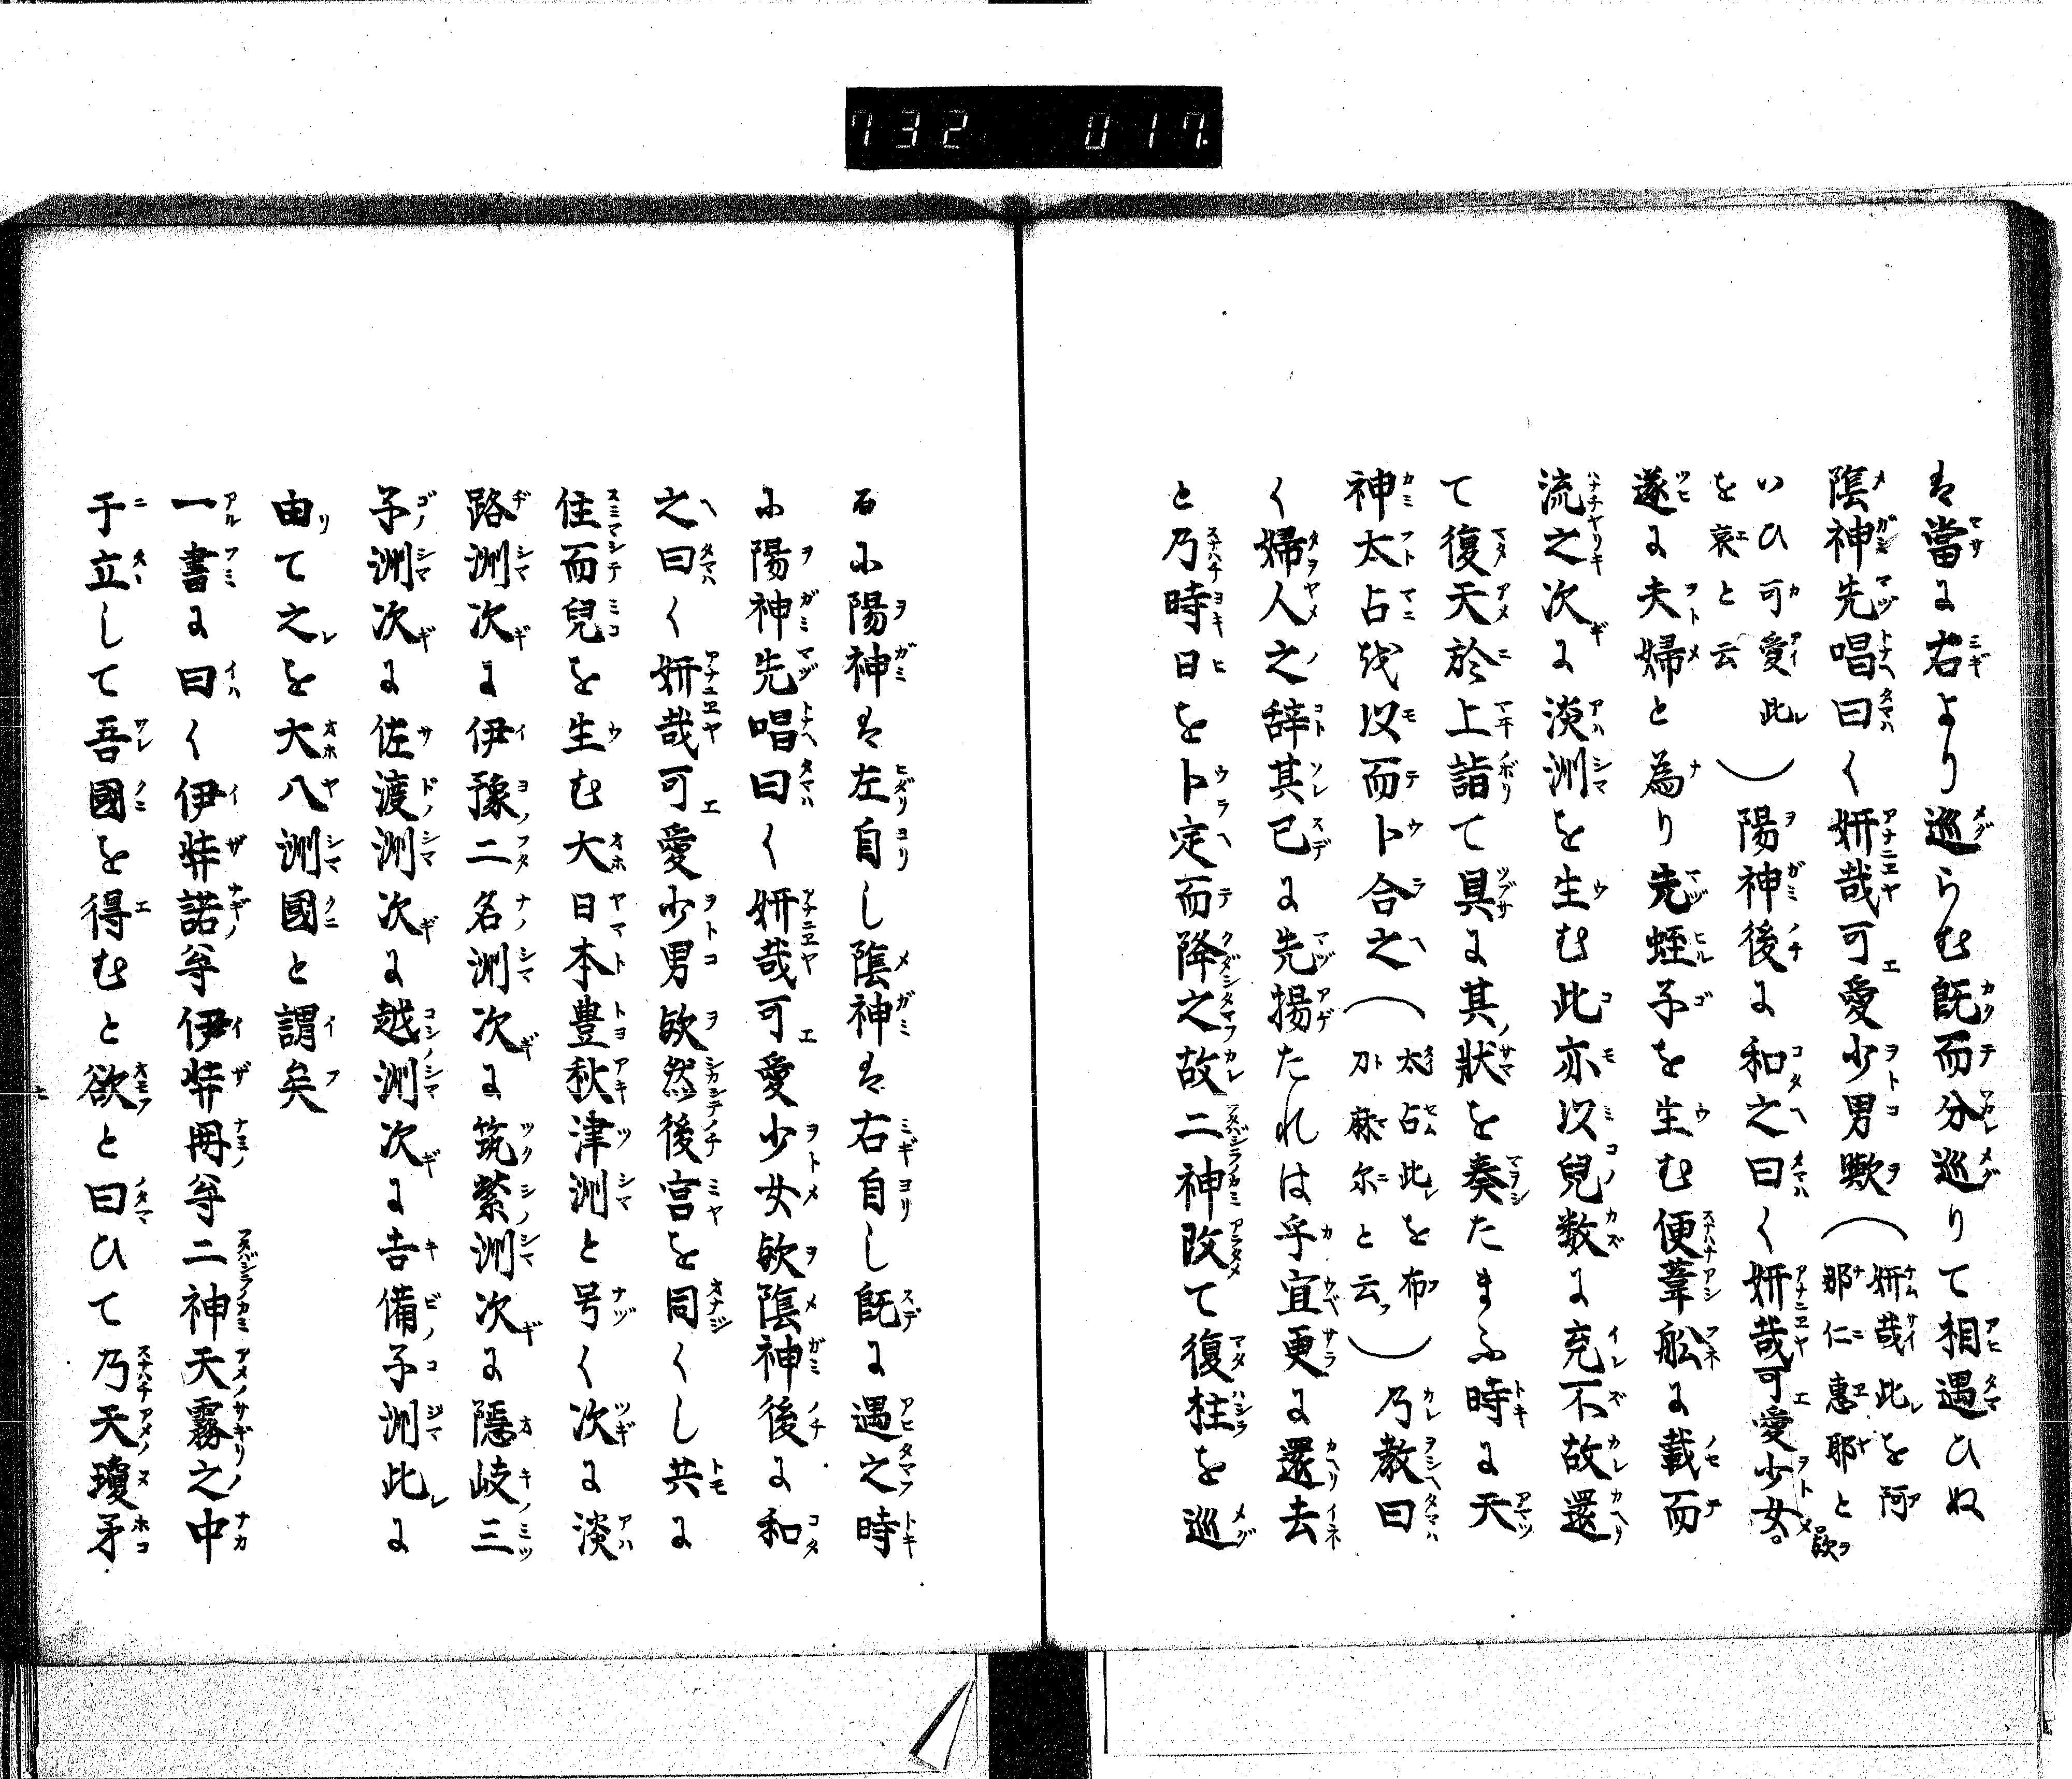 732 017.
は當に右より巡らむ既而分巡りて相遇ひぬ
陰神先唱曰く妍哉可愛少男歟（妍哉此を阿
那仁恵耶と
いひ可愛此
を哀と云）陽神後に和之曰く妍哉可愛少女。歟
遂に夫婦と為り先蛭子を生む便葦船に載而
流之次に淡洲を生む此亦以兒数に充不故還
て復天於上詣て具に其狀を奏たまふ時に天
神太占を以而卜合之（太占此を布
刀麻尓と云）乃教曰
く婦人之辞其已に先揚たれは乎宜更に還去
と乃時日を卜定而降之故二神改て復柱を巡
る小陽神は左自し陰神は右自し既に遇之時
に陽神先唱曰く妍哉可愛少女欤陰神後に和
之曰く妍哉可愛少男欤然後宮を同くし共に
住而兒を生む大日本豊秋津洲と号く次に淡
路洲次に伊豫二名洲次に筑紫洲次に隠岐三
子洲次に佐渡洲次に越洲次に吉備子洲此に
由て之を大八洲國と謂矣
一書に曰く伊弉諾尊伊弉冊尊二神天霧之中
于立して吾國を得むと欲と曰ひて乃天瓊矛